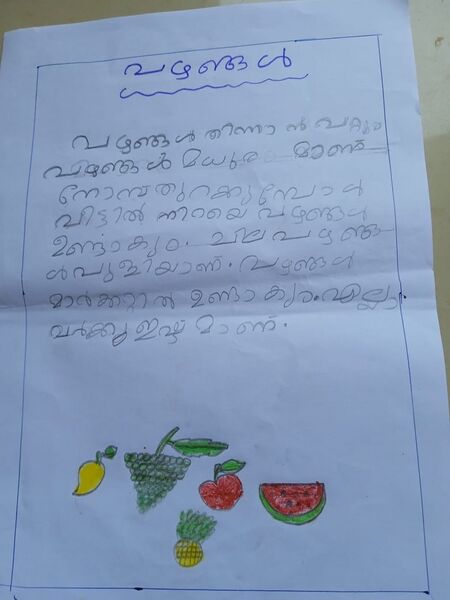 പഴങ്ങൾ
പഴങ്ങൾ തിന്നാൻ പറ്റും
പഴങ്ങൾ മധുരമാണ്
നോമ്പ്തുറക്കുമ്പോൾ
വിട്ടിൽ നിറയെ പഴങ്ങൾ
ഉണ്ടാകും. ചില പഴങ്ങ
ൾപുളിയാണ്. പഴങ്ങൾ
മാർക്കറ്റിൽ ഉണ്ടാകും. എല്ലാ
വർക്കുഇഷ്ട മാണ്.